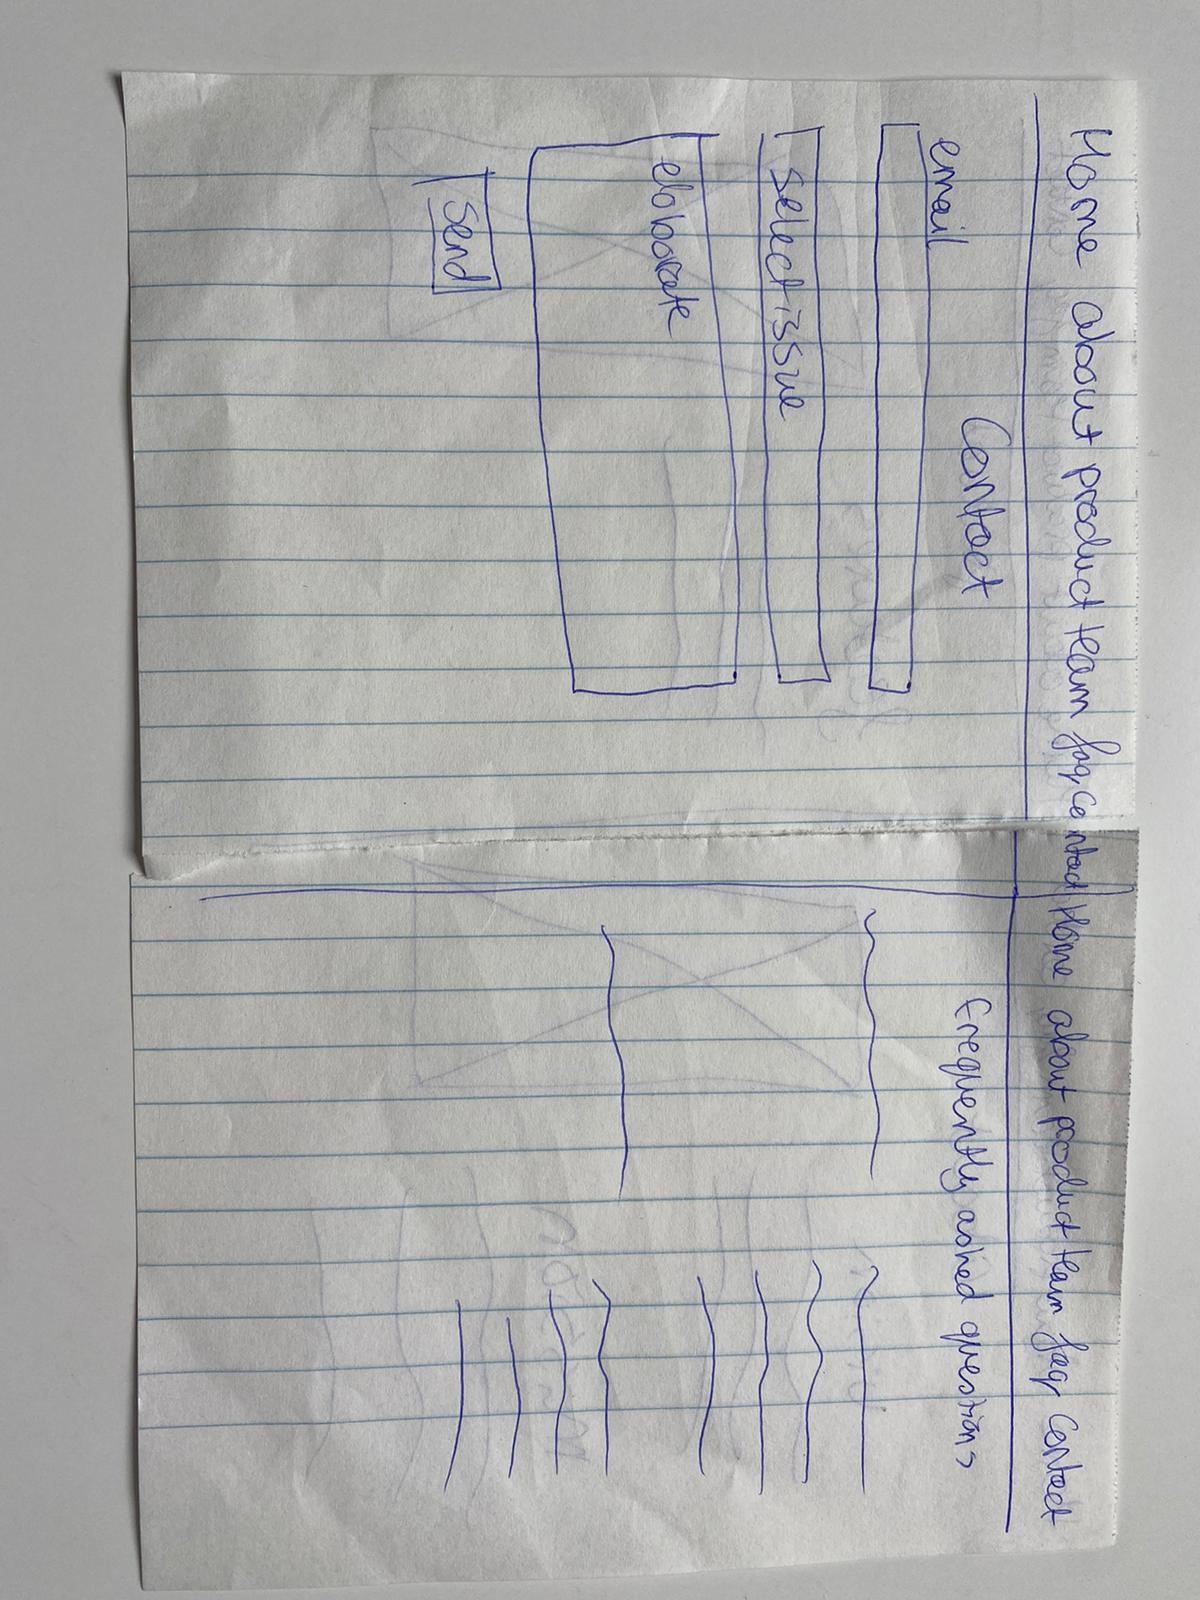 Home about product team faq Contact
Contact
email
select issue
elaborate
Send
Home about product team faq Contact
Frequently asked questions
mission